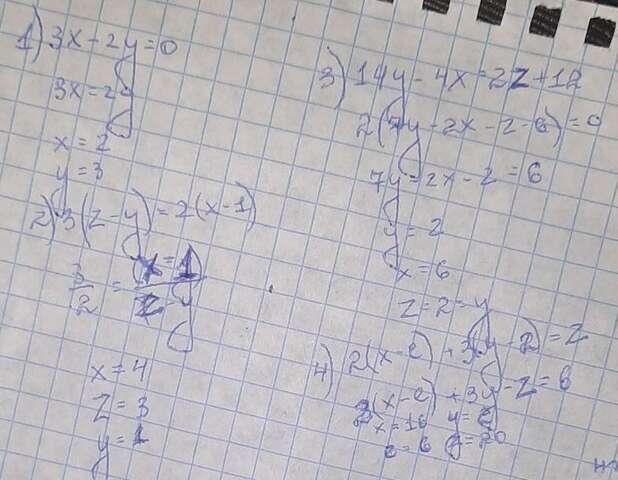 1) 3x-2y=0
3x=2y
x=2
y=3
2) 3(z-y)=2(x-1)
3/2 = (x-1)/(z-y)
x=4
z=3
y=1
3) 14y-4x=2z+12
2(7y-2x-z-6)=0
7y-2x-z=6
y=2
x=6
z=2-y
4) 2(x-e)+3(y-2)=z
2(x-e)+3y-z=6
x=16 y=
e=6 =20